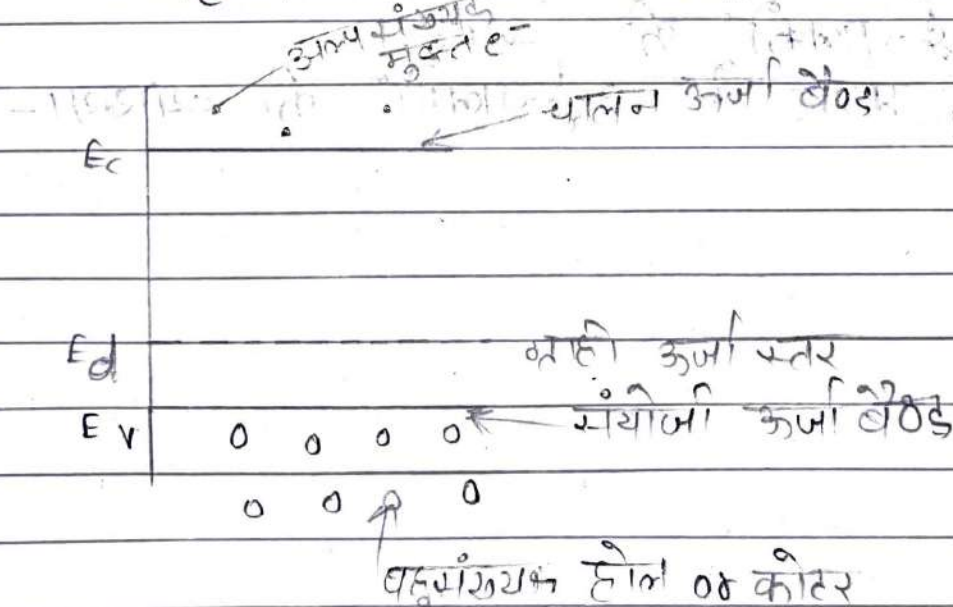 अल्प संख्यक
मुक्त e-
चालन ऊर्जा बैण्ड
Ec
Ed ग्राही ऊर्जा स्तर
Ev संयोजी ऊर्जा बैण्ड
बहुसंख्यक होल or कोटर